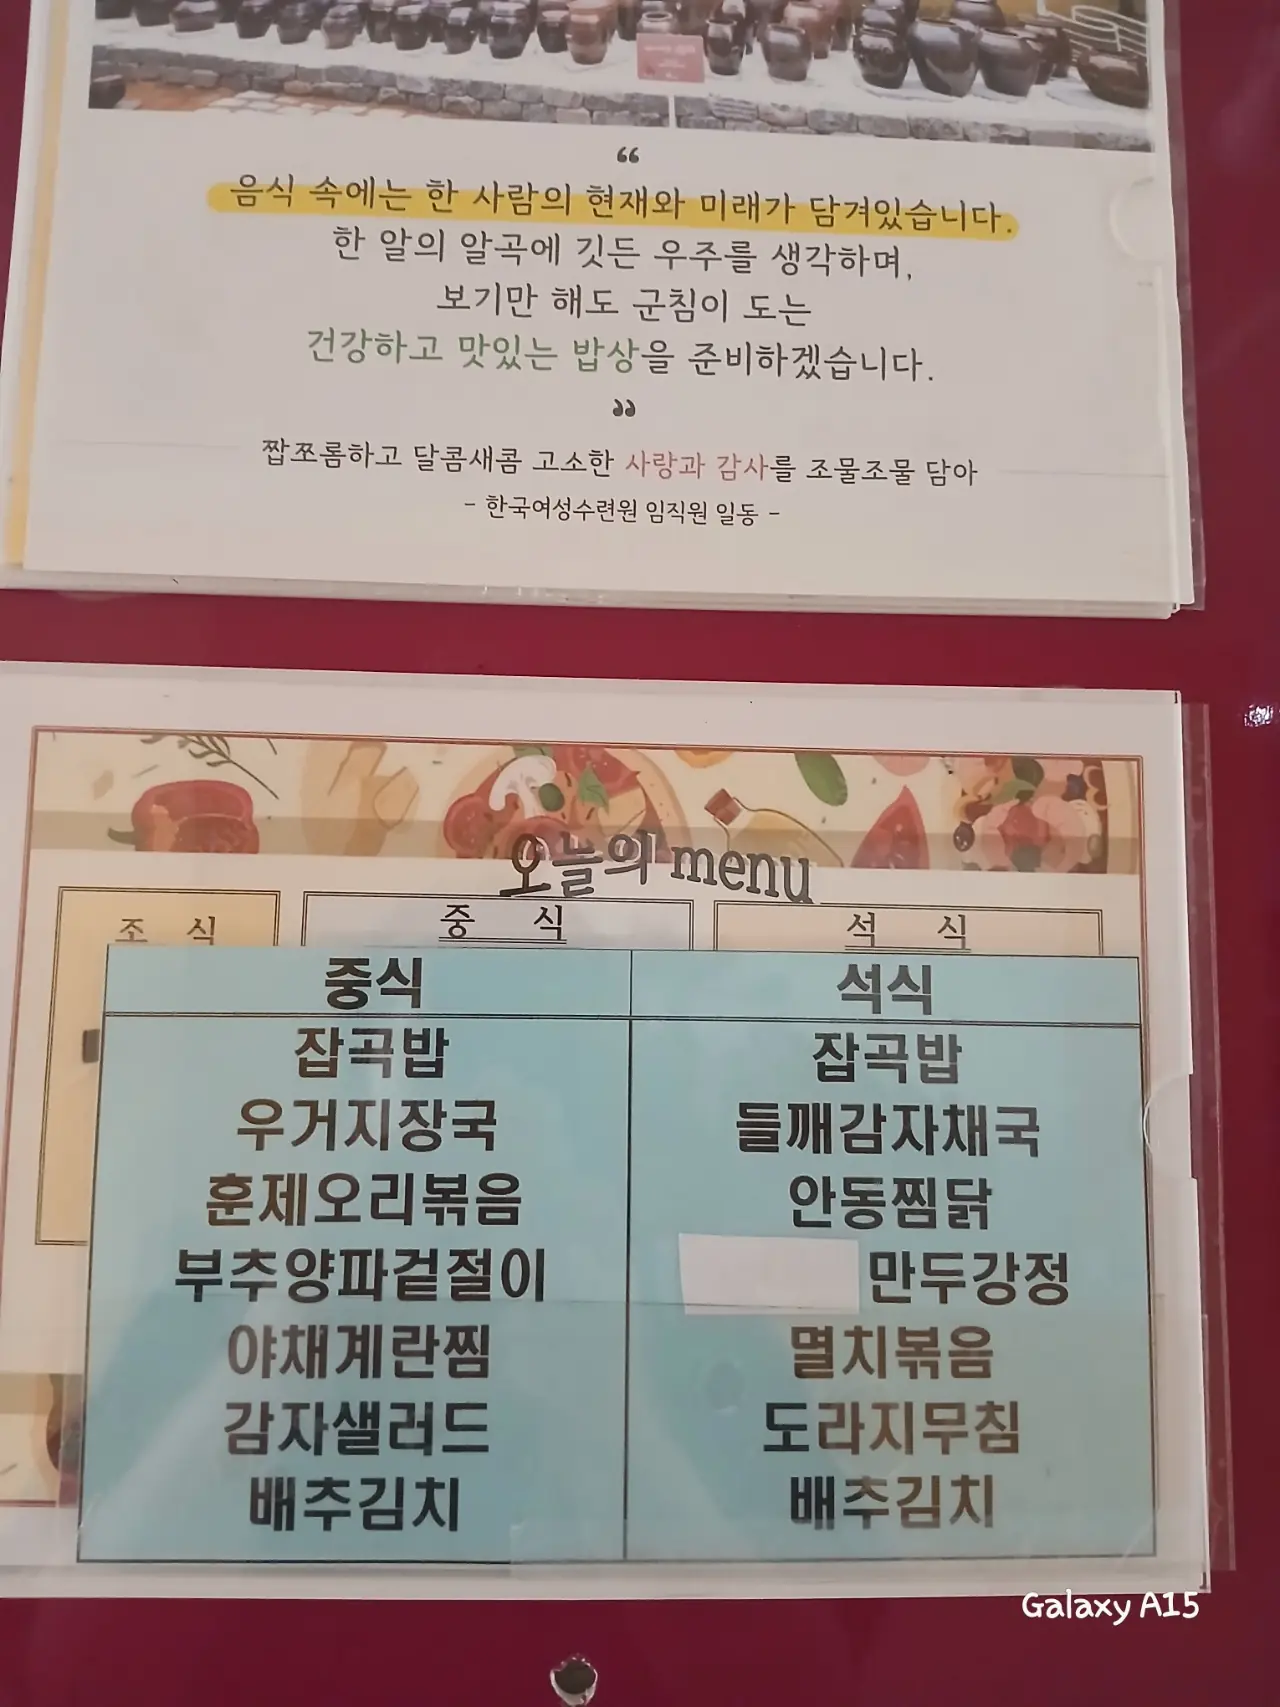 “
음식 속에는 한 사람의 현재와 미래가 담겨있습니다.
한 알의 알곡에 깃든 우주를 생각하며,
보기만 해도 군침이 도는
건강하고 맛있는 밥상을 준비하겠습니다.
”
짭쪼롬하고 달콤새콤 고소한 사랑과 감사를 조물조물 담아
- 한국여성수련원 임직원 일동 -
오늘의 menu
조 식 중 식 석 식
중식 석식
잡곡밥 잡곡밥
우거지장국 들깨감자채국
훈제오리볶음 안동찜닭
부추양파겉절이 만두강정
야채계란찜 멸치볶음
감자샐러드 도라지무침
배추김치 배추김치
Galaxy A15